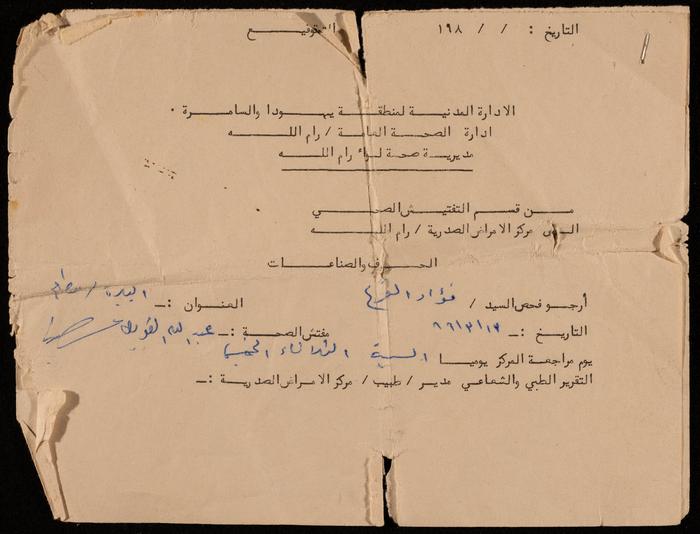 التاريخ : / / ١٩٨ التوقيع
الادارة المدنية لمنطقة يهودا والسامرة ٠
ادارة الصحة العامة / رام الله
مديرية صحة لواء رام الله
من قسم التفتيش الصحي
الى مركز الامراض الصدرية / رام الله
الحرف والصناعات
أرجو فحص السيد / فؤاد العنوان :ـ البيرة /
التاريخ :ـ مفتش الصحة :ـ عبد الله
يوم مراجعة المركز يوميا السبت الثلاثاء الخميس
التقرير الطبي والشعاعي مدير / طبيب / مركز الامراض الصدرية :ـ